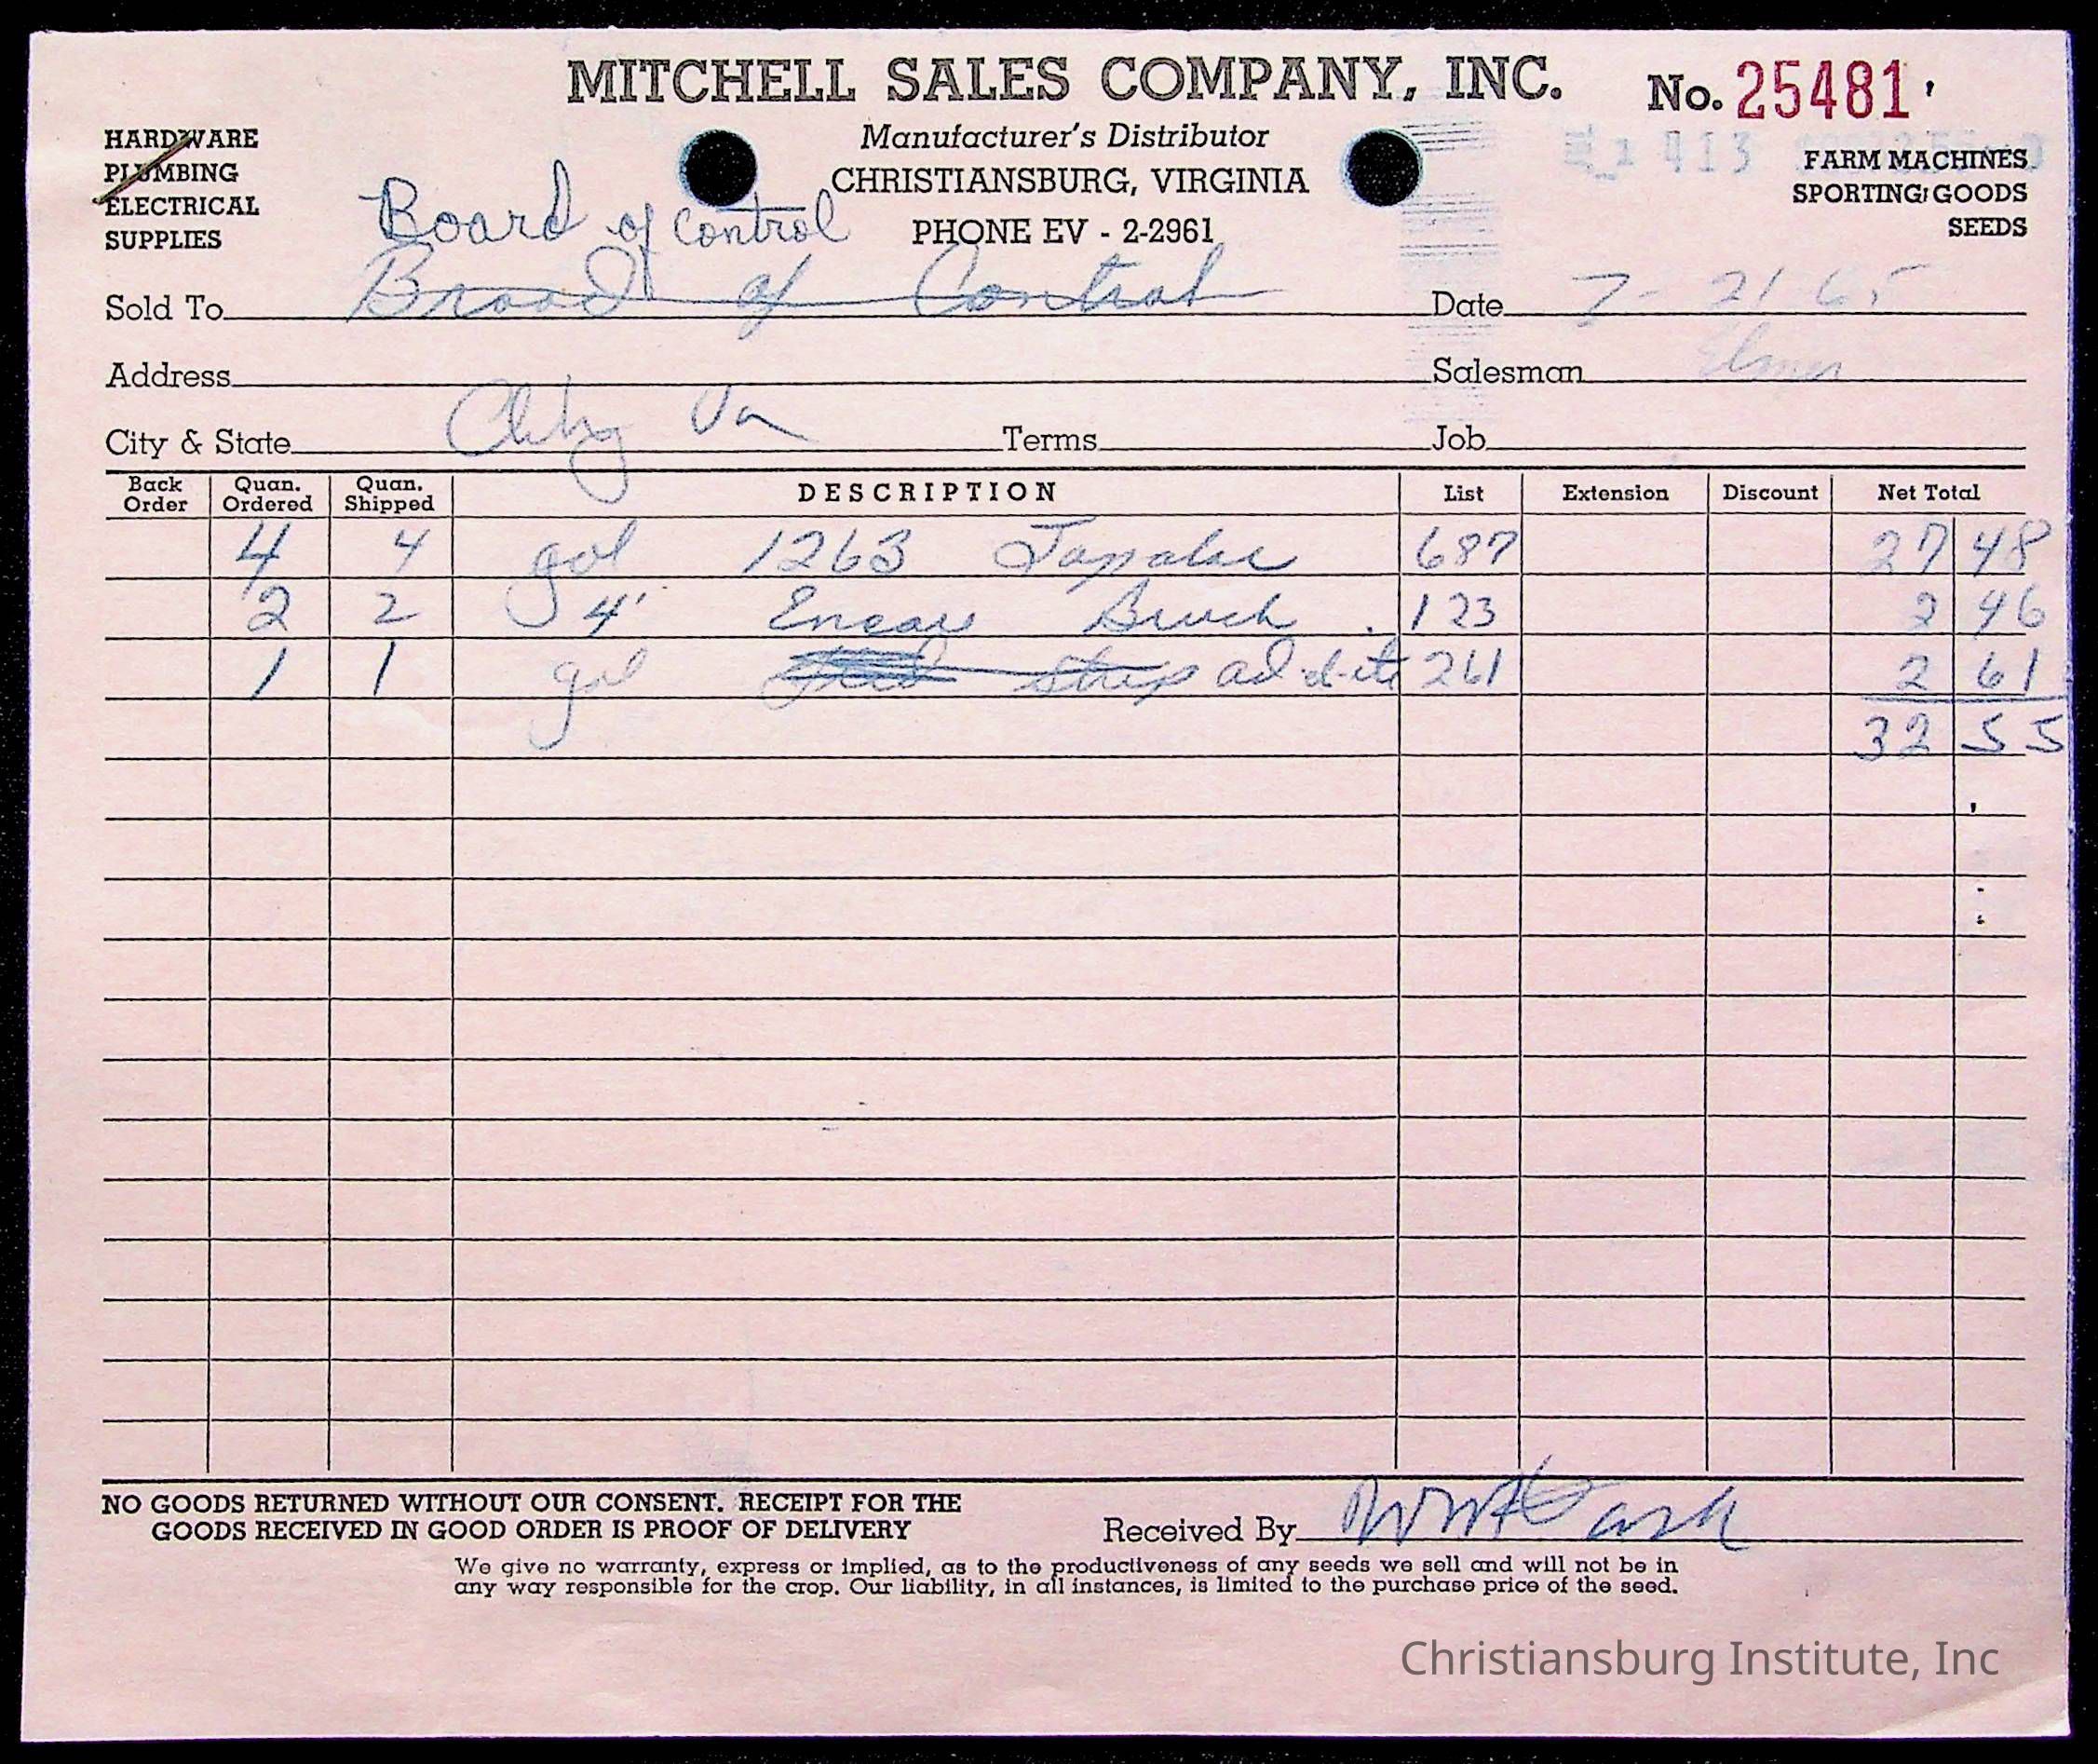 MITCHELL SALES COMPANY, INC.
No. 25481
HARDWARE
PLUMBING
ELECTRICAL
SUPPLIES
Manufacturer's Distributor
CHRISTIANSBURG, VIRGINIA
PHONE EV - 2-2961
FARM MACHINES
SPORTING GOODS
SEEDS
Board of Control
Sold To Broad of Control Date 7-21 65
Address Salesman Elmer
City & State Cbg Va Terms Job
Back Order Quan. Ordered Quan. Shipped DESCRIPTION List Extension Discount Net Total
4 4 gal 1263 687 27 48
2 2 4' Brush 123 2 46
1 1 gal strip 261 2 61
32 55
NO GOODS RETURNED WITHOUT OUR CONSENT. RECEIPT FOR THE
GOODS RECEIVED IN GOOD ORDER IS PROOF OF DELIVERY
Received By
We give no warranty, express or implied, as to the productiveness of any seeds we sell and will not be in
any way responsible for the crop. Our liability, in all instances, is limited to the purchase price of the seed.
Christiansburg Institute, Inc